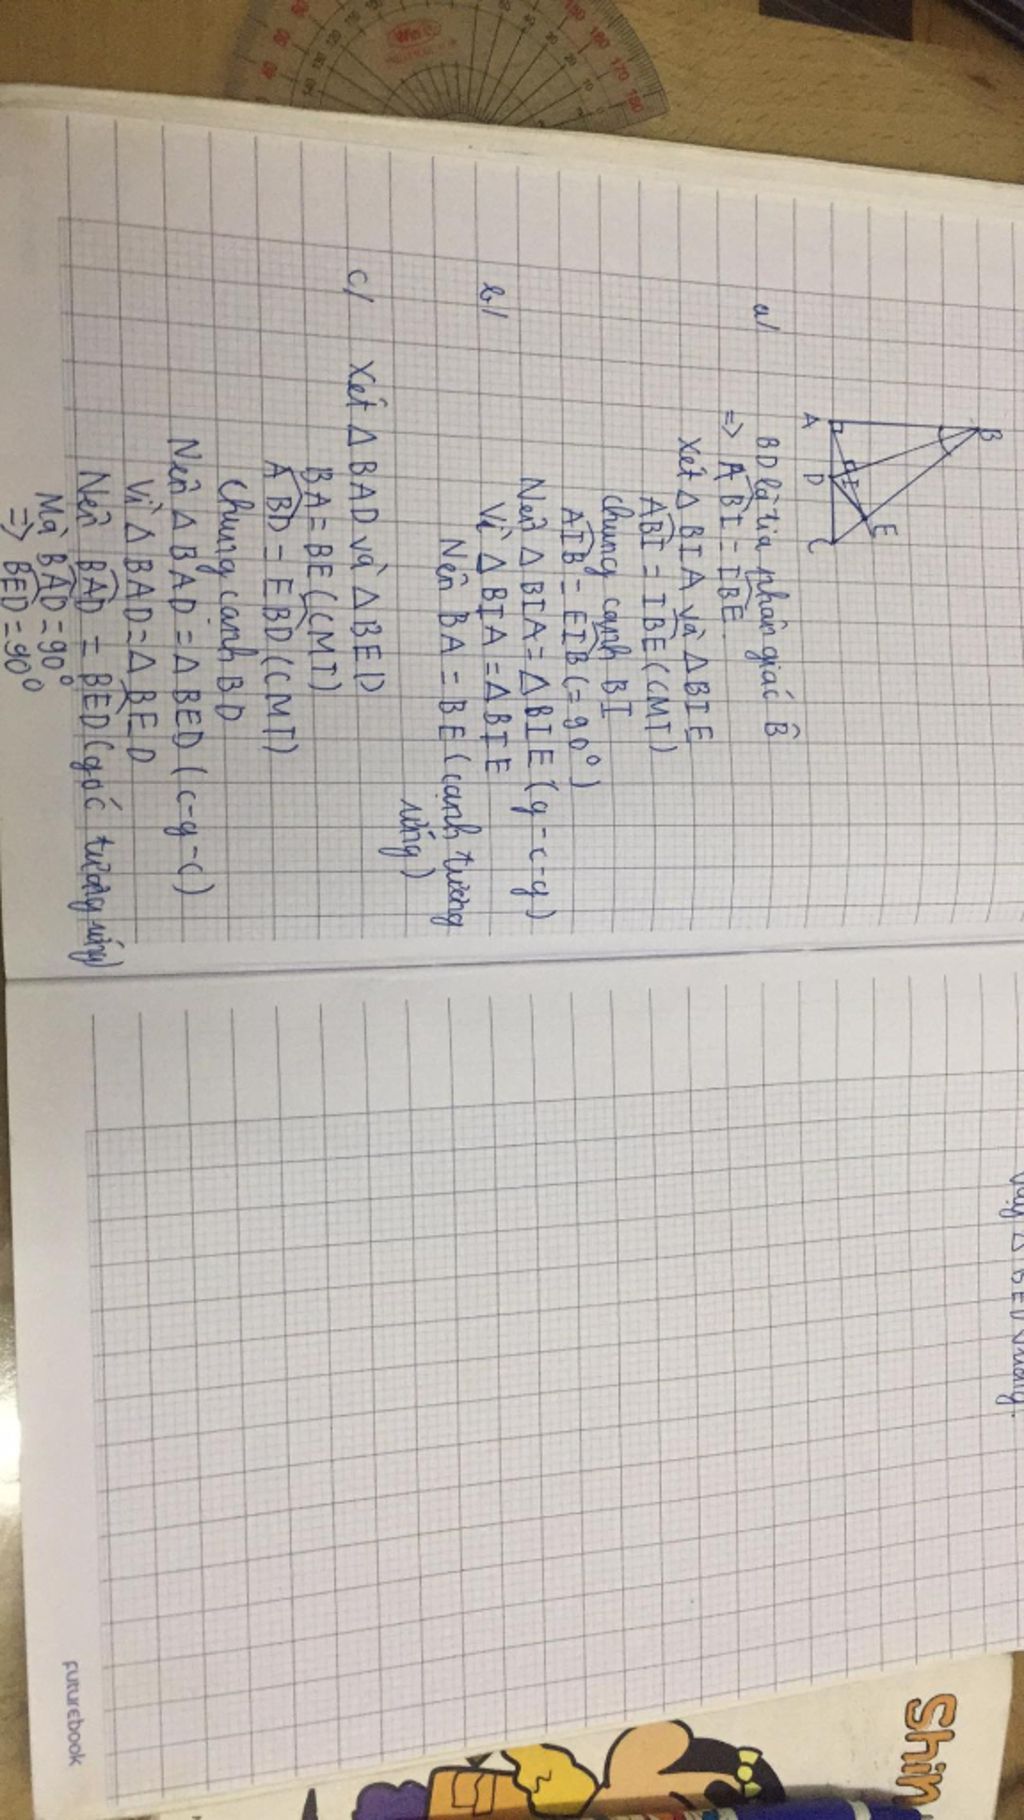 B
A
D
I
E
C
a/ BD là tia phân giác B̂
=> ABI = IBE.
Xét Δ BIA và Δ BIE
ABI = IBE (CMT)
chung cạnh BI
AIB = EIB (= 90°)
Nên Δ BIA = Δ BIE (g-c-g)
b/ Vì Δ BIA = Δ BIE
Nên BA = BE (cạnh tương
ứng)
c/ Xét Δ BAD và Δ BED
BA = BE (CMT)
ABD = EBD (CMT)
Chung cạnh BD
Nên Δ BAD = Δ BED (c-g-c)
Vì Δ BAD = Δ BED
Nên BAD = BED (góc tương ứng)
Mà BAD = 90°
=> BED = 90°
Vậy Δ BED vuông.
FUTUREBOOK
Shin